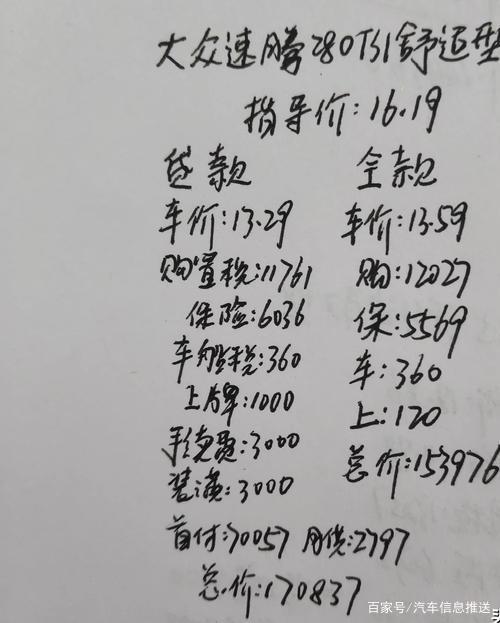 大众速腾280TSI舒适型
指导价:16.19
贷款 全款
车价:13.29 车价:13.59
购置税:11761 购:12027
保险:6036 保:5569
车船税:360 车:360
上牌:1000 上:120
手续费:3000 总价:153976
装潢:3000
首付:70057 月供:2797
总价:170837
百家号/汽车信息推送